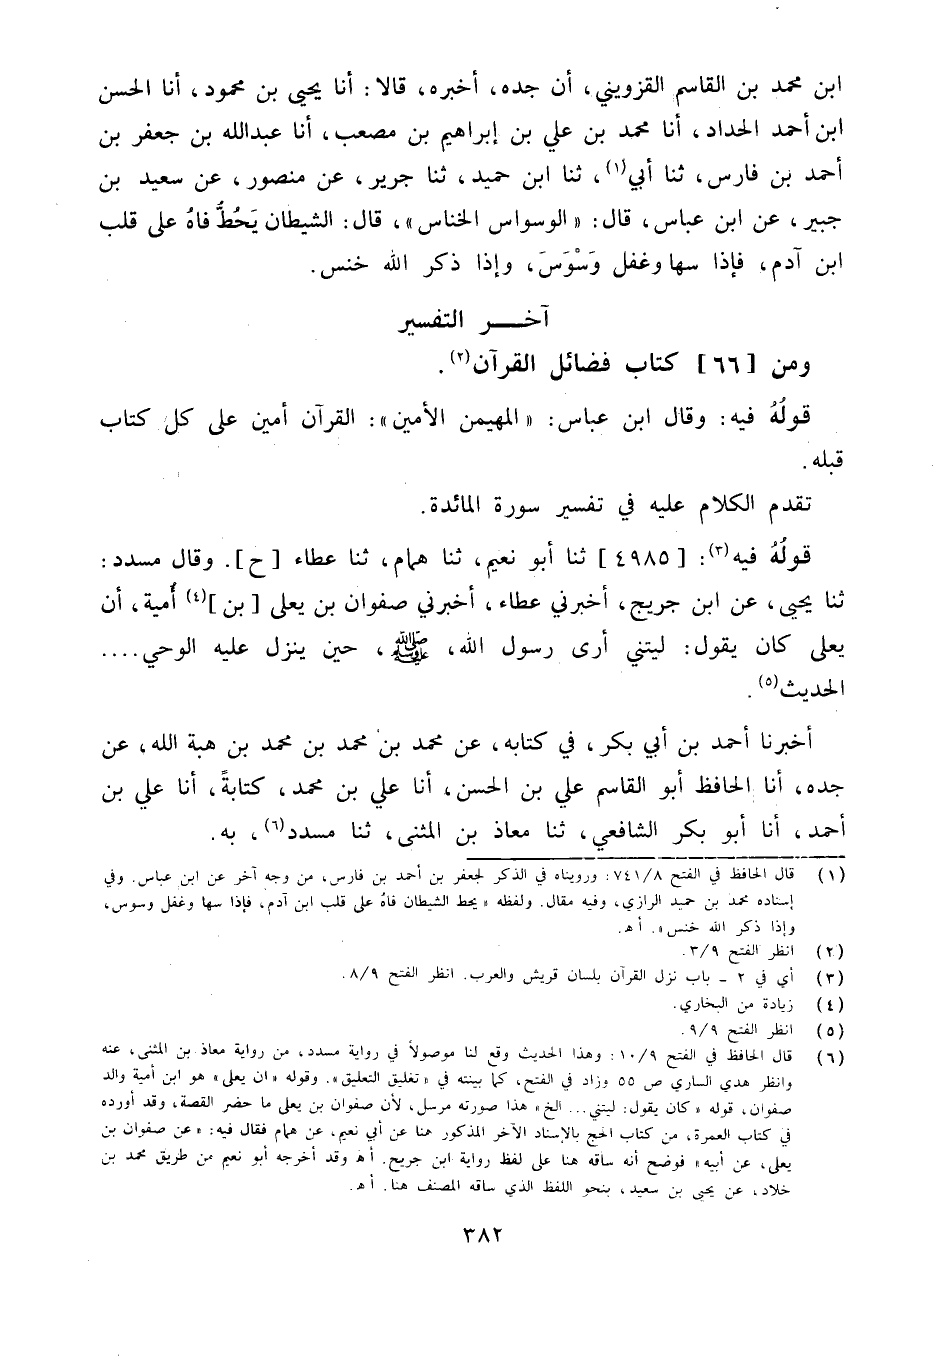 ابن محمد بن القاسم القزويني، أن جده، أخبره، قالا: أنا يحيى بن محمود، أنا الحسن
ابن أحمد الحداد، أنا محمد بن علي بن إبراهيم بن مصعب، أنا عبدالله بن جعفر بن
أحمد بن فارس، ثنا أبي(١)، ثنا ابن حميد، ثنا جرير، عن منصور، عن سعيد بن
جبير، عن ابن عباس، قال: «الوسواس الخناس»، قال: الشيطان يَحُطُّ فاهُ على قلب
ابن آدم، فإذا سها وغفل وَسْوَسَ، وإذا ذكر الله خنس.
آخـــر التفسير
ومن [٦٦] كتاب فضائل القرآن(٢).
قولُهُ فيه: وقال ابن عباس: «المهيمن الأمين»: القرآن أمين على كل كتاب
قبله.
تقدم الكلام عليه في تفسير سورة المائدة.
قولُهُ فيه(٣): [٤٩٨٥] ثنا أبو نعيم، ثنا همام، ثنا عطاء [ح]. وقال مسدد:
ثنا يحيى، عن ابن جريج، أخبرني عطاء، أخبرني صفوان بن يعلى [بن](٤) أُمية، أن
يعلى كان يقول: ليتني أرى رسول الله، ﷺ، حين ينزل عليه الوحي....
الحديث(٥).
أخبرنا أحمد بن أبي بكر، في كتابه، عن محمد بن محمد بن محمد بن هبة الله، عن
جده، أنا الحافظ أبو القاسم علي بن الحسن، أنا علي بن محمد، كتابةً، أنا علي بن
أحمد، أنا أبو بكر الشافعي، ثنا معاذ بن المثنى، ثنا مسدد(٦)، به.
(١) قال الحافظ في الفتح ٧٤١/٨: ورويناه في الذكر لجعفر بن أحمد بن فارس، من وجه آخر عن ابن عباس. وفي
إسناده محمد بن حميد الرازي، وفيه مقال. ولفظه «يحط الشيطان فاهُ على قلب ابن آدم، فإذا سها وغفل وسوس،
وإذا ذكر الله خنس». أهـ.
(٢) انظر الفتح ٣/٩.
(٣) أي في ٢ ـ باب نزل القرآن بلسان قريش والعرب. انظر الفتح ٨/٩.
(٤) زيادة من البخاري.
(٥) انظر الفتح ٩/٩.
(٦) قال الحافظ في الفتح ١٠/٩: وهذا الحديث وقع لنا موصولاً في رواية مسدد، من رواية معاذ بن المثنى، عنه
وانظر هدي الساري ص ٥٥ وزاد في الفتح، كما بينته في «تغليق التعليق». وقوله «ان يعلى» هو ابن أمية والد
صفوان، قوله «كان يقول: ليتني... الخ» هذا صورته مرسل، لأن صفوان بن يعلى ما حضر القصة، وقد أورده
في كتاب العمرة، من كتاب الحج بالإسناد الآخر المذكور هنا عن أبي نعيم، عن همام فقال فيه: «عن صفوان بن
يعلى، عن أبيه» فوضح أنه ساقه هنا على لفظ رواية ابن جريج. أهـ وقد أخرجه أبو نعيم من طريق محمد بن
خلاد، عن يحيى بن سعيد، بنحو اللفظ الذي ساقه المصنف هنا. أهـ.
٣٨٢